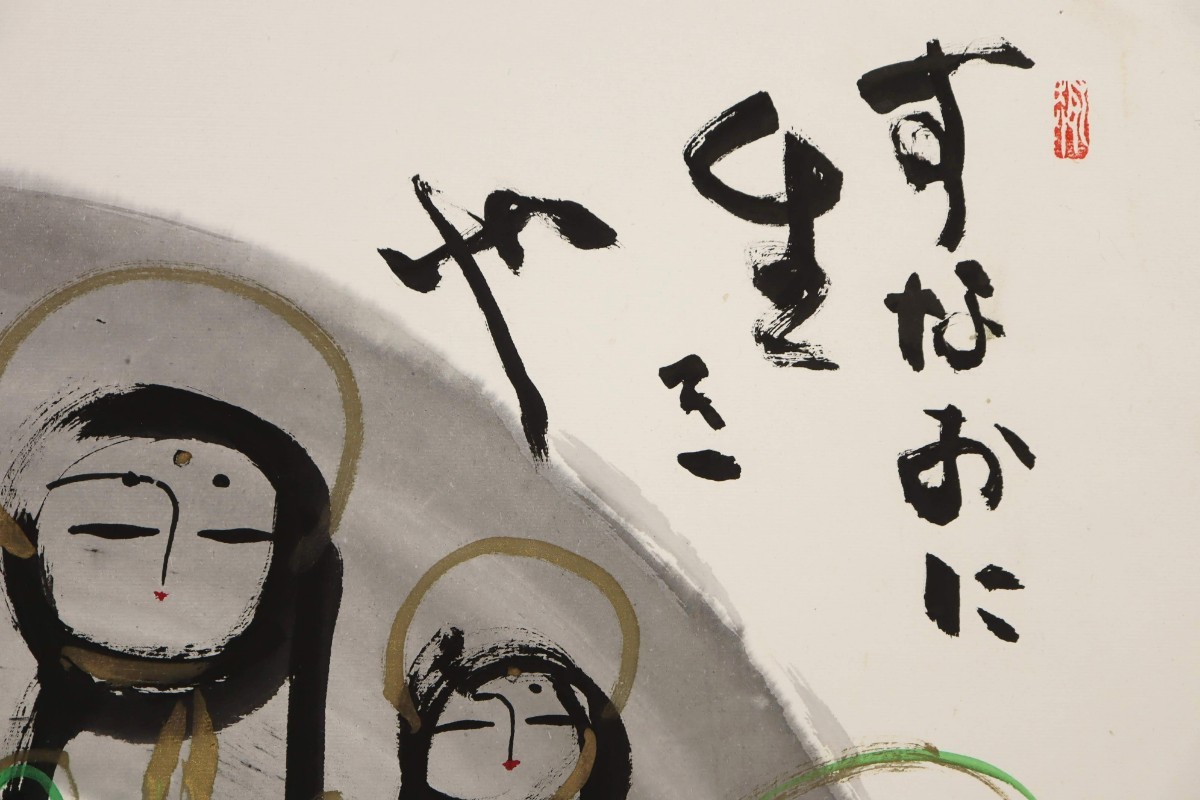 すなおに
生き
や